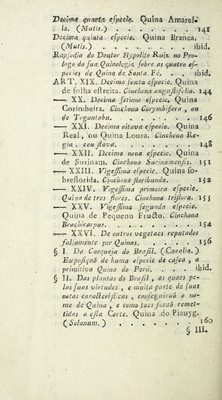 Decima quarta especie. Quina Amarel-
la. (Mutis.) . . . . . 141
Decima quinta especie. Quina Branca.
(Mutis.) . . . . . ibid.
Rapsodia do Doutor Hyppolito Ruiz no Pro-
logo da sua Quinologia sobre as quatro es-
pecies de Quina de Santa Fé. . . ibid.
ART. XIX. Decima sexta especie. Quina
de folha estreita. Cinchona angustifolia. . 144
—— XX. Decima setima especie. Quina
Corimbeira. Cinchona Corymbifera, ou
de Tegantabu. . . . . 146
—— XXI. Decima oitava especie. Quina
Real, ou Quina Loura. Cinchona Re-
gia, seu flava. . . . . 148
—— XXII. Decima nona especie. Quina
de Surinam. Cinchona Surinamensis. . 151
—— XXIII. Vigesima especie. Quina so-
breflorida. Cinchona floribunda. . . 152
—— XXIV. Vigesima primeira especie.
Quina de tres flores. Cinchona triflora. . 153
—— XXV. Vigesima segunda especie.
Quina de Pequeno Frusto. Cinchona
Brachicarpus. . . . . 154
—— XXVI. De outros vegetaes reputados
falsamente por Quinas. . . . 156
§ I. Da Carqueja do Brasil. (Cacalia.)
Exposição de huma especie de casca, a
primitiva Quina do Perú. . . . ibid.
§ II. Das plantas do Brasil, as quaes pe-
las suas virtudes, e muito parte de suas
notas caracteristicas, conseguirão o no-
me de Quina, e como taes forão remet-
tidas a esta Corte. Quina do Pinuyg.
(Solanum.) . . . . . 160
§ III.